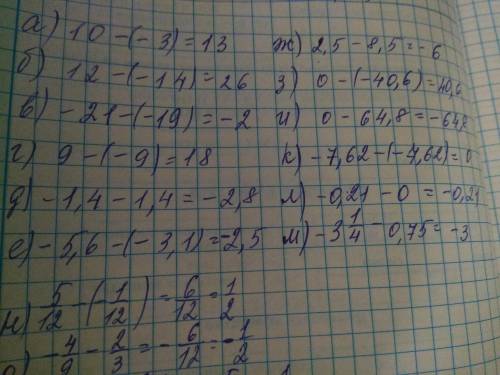 а) 10 - (-3) = 13 ж) 2,5 - 8,5 = -6
б) 12 - (-14) = 26 з) 0 - (-40,6) = 40,6
в) - 21 - (-19) = -2 и) 0 - 64,8 = -64,8
г) 9 - (-9) = 18 к) -7,62 - (-7,62) = 0
д) -1,4 - 1,4 = -2,8 л) -0,21 - 0 = -0,21
е) -5,6 - (-3,1) = -2,5 м) -3 1/4 - 0,75 = -3
н) 5/12 - (-1/12) = 6/12 = 1/2
о) -4/9 - 2/3 = -6/12 = -1/2